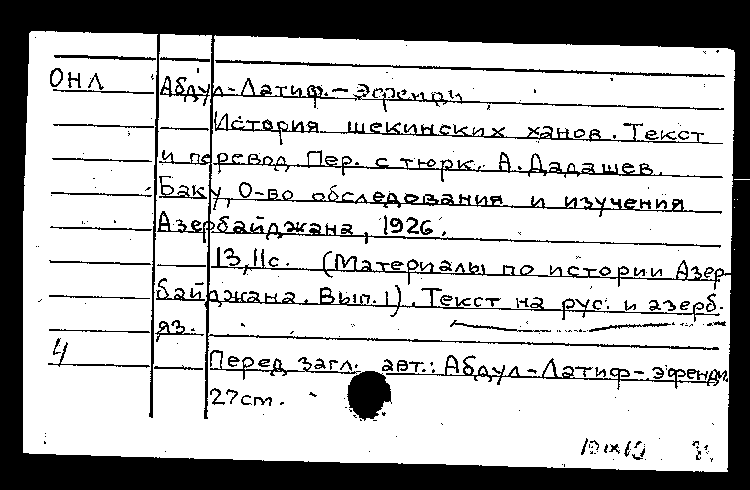 ОНЛ
Абдул-Латиф.-Эфенди
История шекинских ханов. Текст
и перевод Пер. с тюрк. А. Дадашев.
Баку, О-во обследования и изучения
Азербайджана, 1926.
13, 11с. (Материалы по истории Азер-
байджана. Вып. 1). Текст на рус. и азерб.
яз.
4
Перед загл. авт.: Абдул-Латиф-эфенди.
27см.